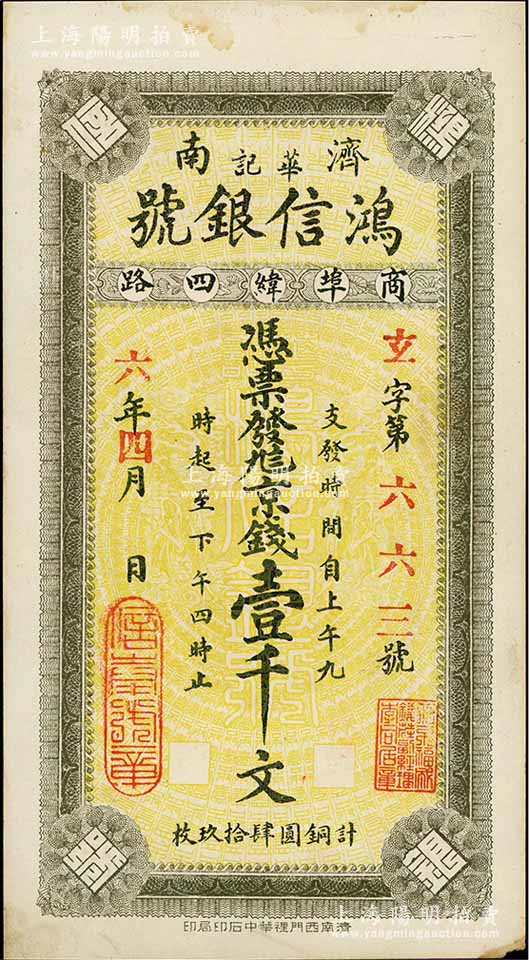 上海陽明拍賣
www.yangmingauction.com
濟華記南
鴻信銀號
商埠緯四路
玄字第六六三號
支發時間自上午九
憑票發九京錢壹千文
時起至下午四時止
六年四月 日
上海陽明拍賣
www.yangmingauction.com
計銅圓肆拾玖枚
濟南西門裡華中石印局印
上海陽明拍賣
www.yangmingauction.com